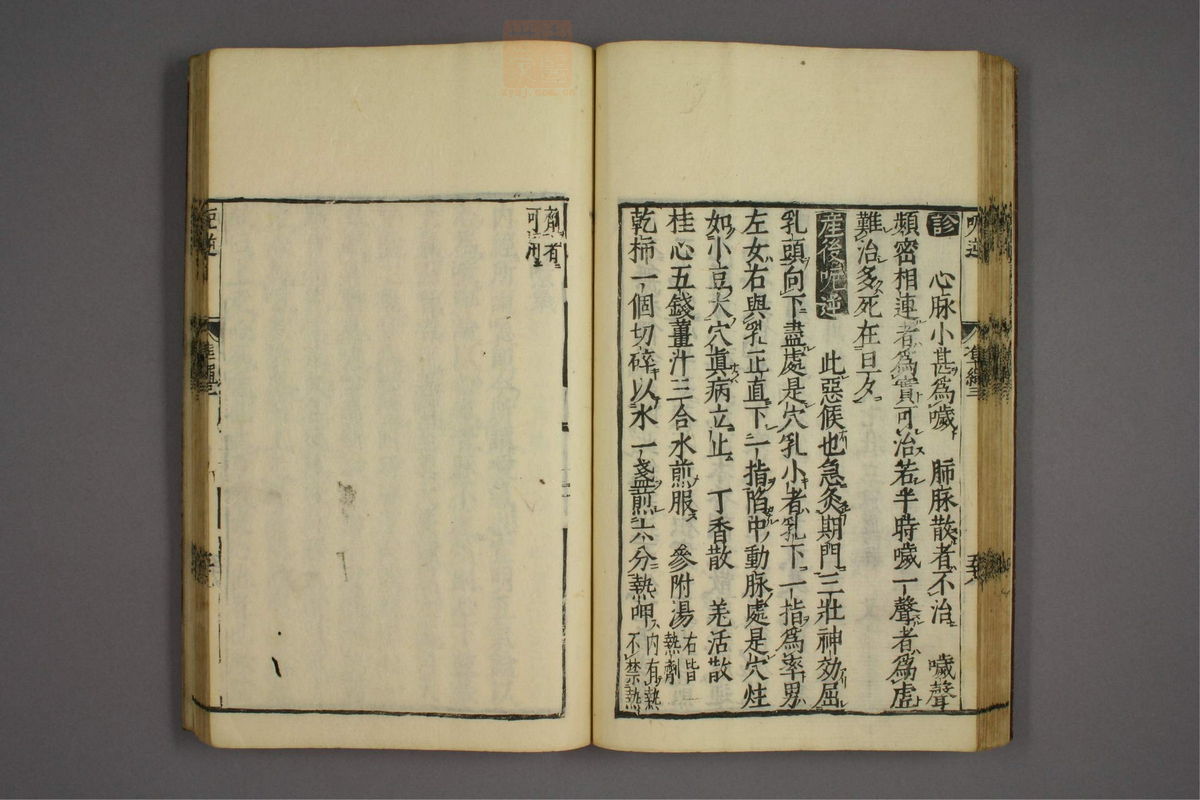 診 心脉小甚為噦 肺脉散者不治 噦聲
頻密相連者為實可治若半時噦一聲者為虛
難治多死在旦夕
産後呃逆 此惡候也急灸期門三壯神効屈
乳頭向下盡處是穴乳小者乳下一指為率男
左女右與乳正直下一指陷中動脉處是穴炷
如小豆大穴真病立止 丁香散 羌活散
桂心五錢薑汁三合水煎服 參附湯 右皆熱劑
乾柹一個切碎以水一盞煎六分熱呷 内有熱不禁熱
劑者可用
呃逆
準繩三